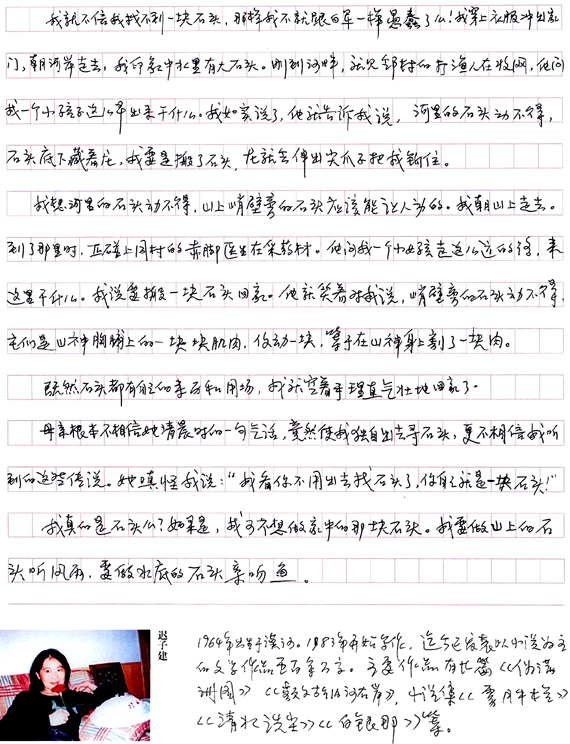 我就不信我找不到一块石头，那样我不就跟白军一样愚蠢了么！我穿上衣服冲出家
门，朝河岸走去，我印象中水里有大石头。刚到河畔，就见邻村的打渔人在收网，他问
我一个小孩子这么早出来干什么。我如实说了，他就告诉我说，河里的石头动不得，
石头底下藏着龙，我要是搬了石头，龙就会伸出尖爪子把我钩住。
我想河里的石头动不得，山上峭壁旁的石头应该能让人动的。我朝山上走去。
到了那里时，正碰上同村的赤脚医生在采药材。他问我一个小女孩走这么远的路，来
这里干什么。我说要搬一块石头回家。他就笑着对我说，峭壁旁的石头动不得，
它们是山神胸脯上的一块块肌肉，你动一块，等于在山神身上割了一块肉。
既然石头都有自己的来历和用场，我就空着手理直气壮地回家了。
母亲根本不相信她清晨时的一句气话，竟然使我独自出去寻石头，更不相信我听
到的这些传说。她嗔怪我说：“我看你不用出去找石头了，你自己就是一块石头！”
我真的是石头么？如果是，我可不想做家中的那块石头。我要做山上的石
头听风雨，要做水底的石头亲吻鱼。
迟子建
1964年出生于漠河。1983年开始写作，迄今已发表以小说为主
的文学作品五百余万字。主要作品有长篇《伪满
洲国》《额尔古纳河右岸》，小说集《雾月牛栏》
《清水洗尘》《白银那》等。